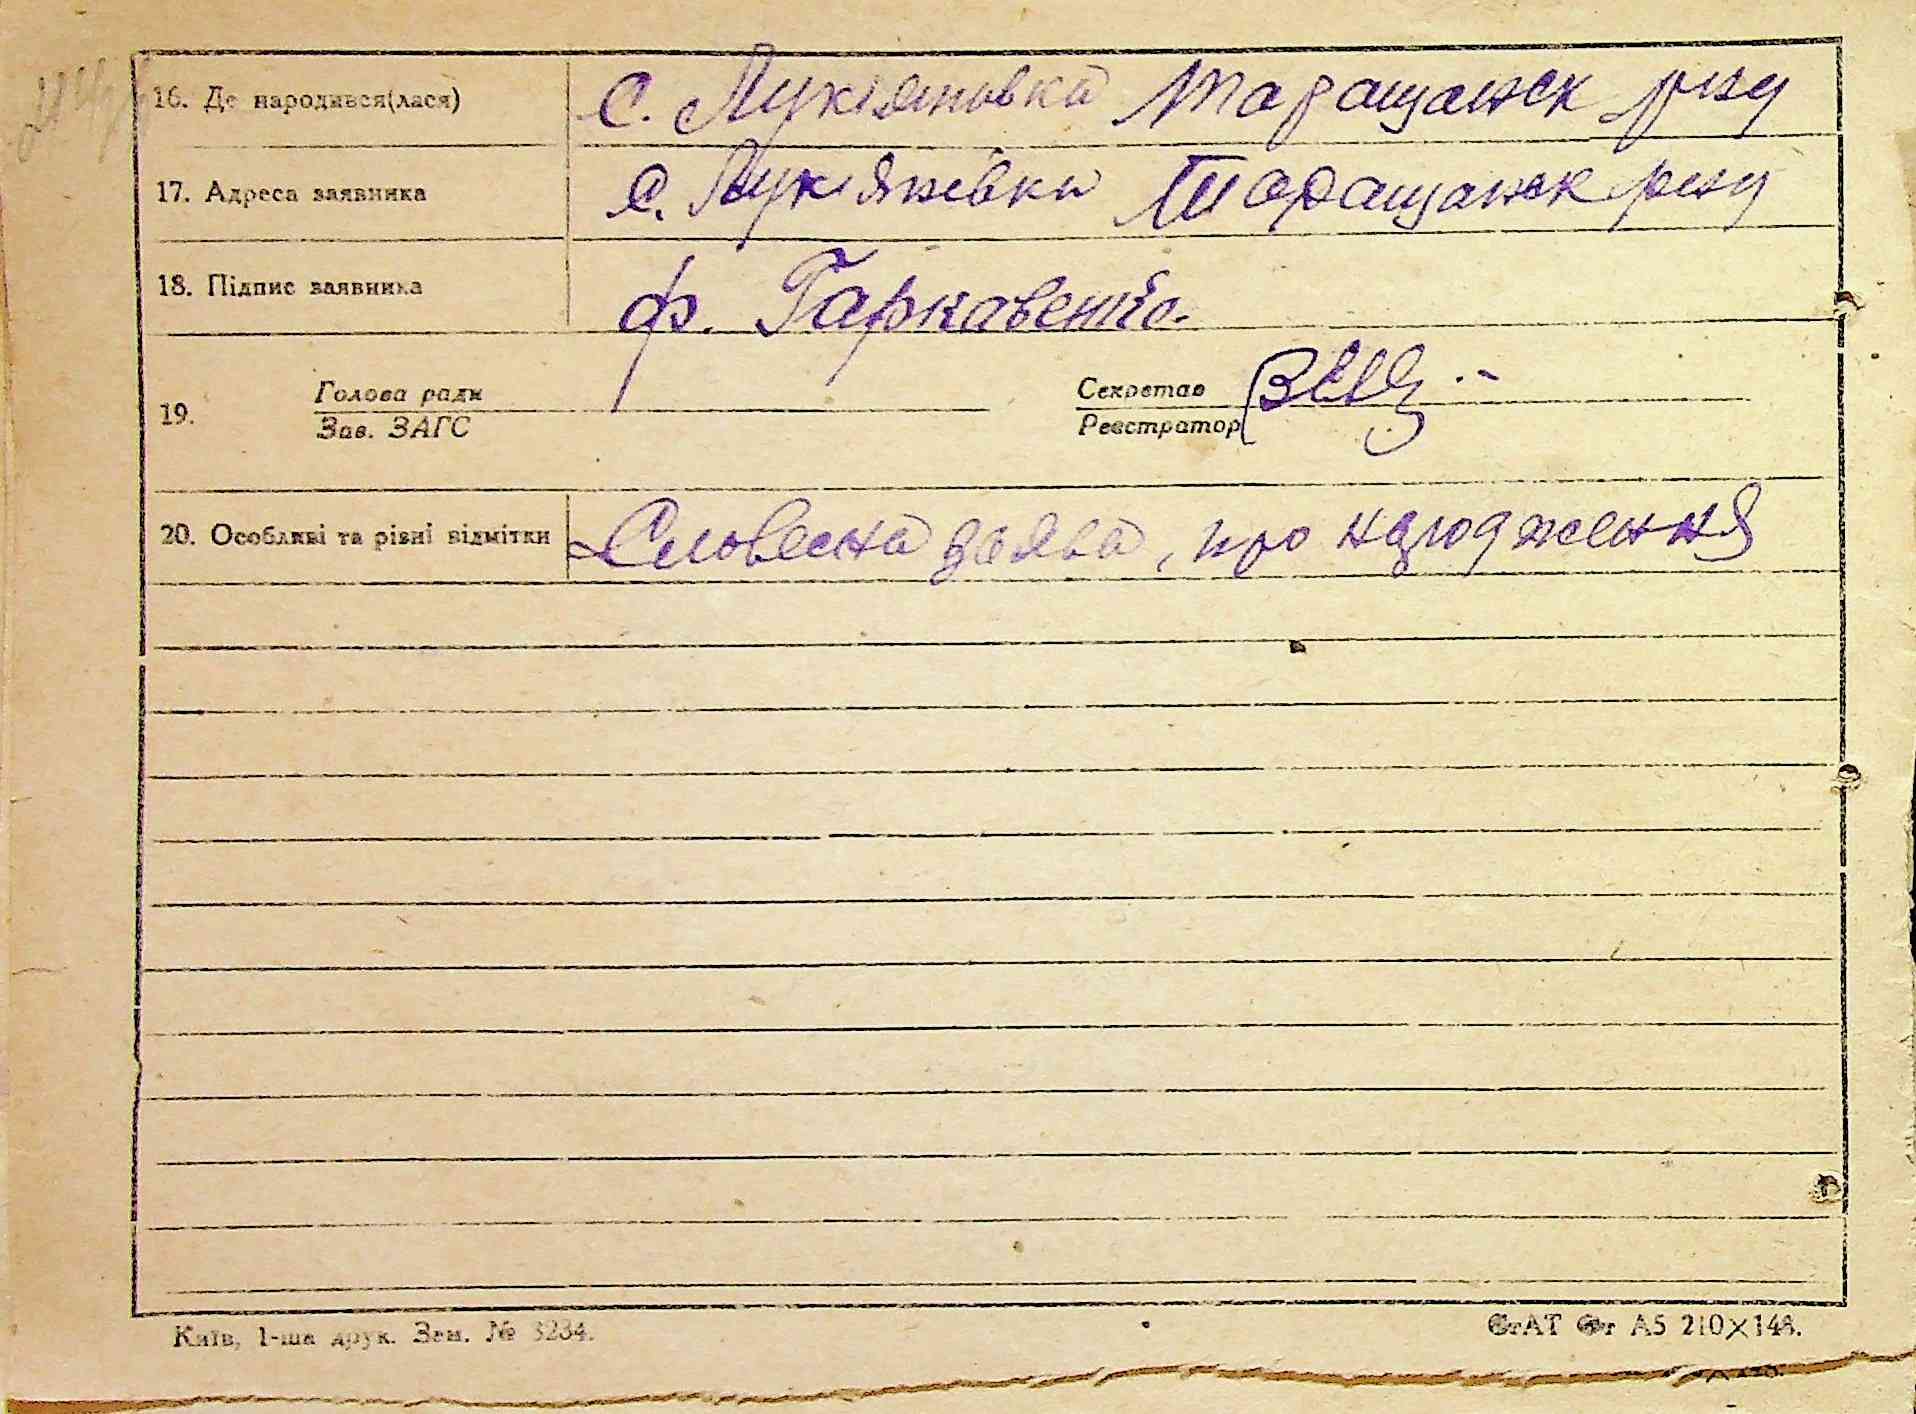 16. Де народився(лася) С. Лукіяновка Таращанск р-ну
17. Адреса заявника с. Лукіянівка Таращанск р-ну
18. Підпис заявника Ф. Гаркавенко.
19. Голова ради Секретар
Зав. ЗАГС Реєстратор
20. Особливі та різні відмітки Словесна заява, про народження
Київ, 1-ша друк. Зам. № 3234. А5 210×148.